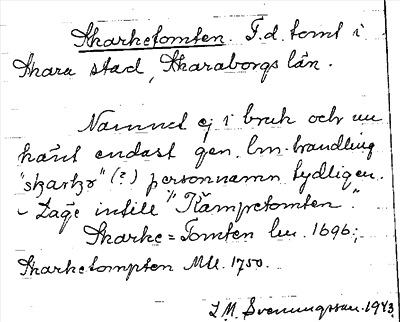 Skarketomten. F.d. tomt i
Skara stad, Skaraborgs län.
Namnet ej i bruk och nu
känt endast gen. lm.-handling
"skarke" (?) personnamn tydligen.
- Läge intill "Kämpetomten".
Skarke=Tomten lm. 1696;
Sharketompten MU. 1750.
I.M. Svenungsson. 1943.